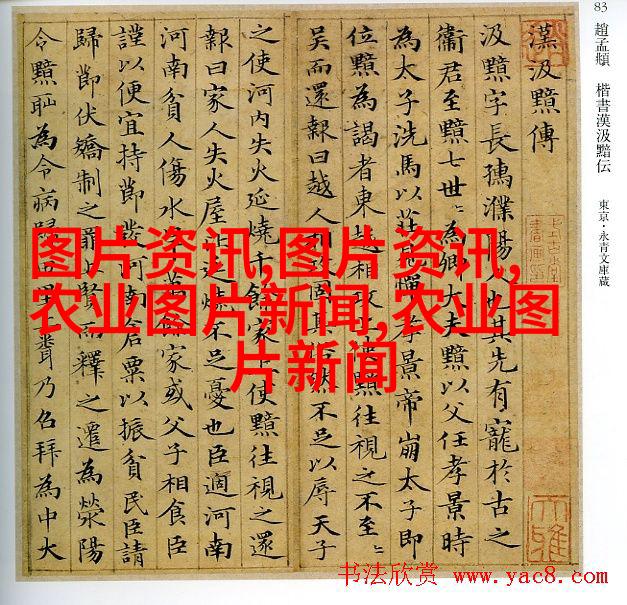 83 趙孟頫 楷書漢汲黯伝 東京・永青文庫蔵
漢汲黯傳
汲黯字長孺濮陽人也其先有寵於古之
衞君至黯七世〻為卿大夫黯以父任孝景時
為太子洗馬以莊見憚孝景帝崩太子即
位黯為謁者東越相攻上使黯往視之不至〻
吴而還報曰越人相攻固其俗然不足以辱天子
之使河内失火延燒千餘家上使黯往視之還
報曰家人失火屋比延燒不足憂也臣適河南
河南貧人傷水旱萬餘家或父子相食臣
謹以便宜持節發河南倉粟以振貧民臣請
歸節伏矯制之罪上賢而釋之遷為滎陽
令黯恥為令病歸田里上乃召拜為中大
图片资讯,图片资讯,
农业图片新闻,农业图
片新闻
书法欣赏 www.yac8.com